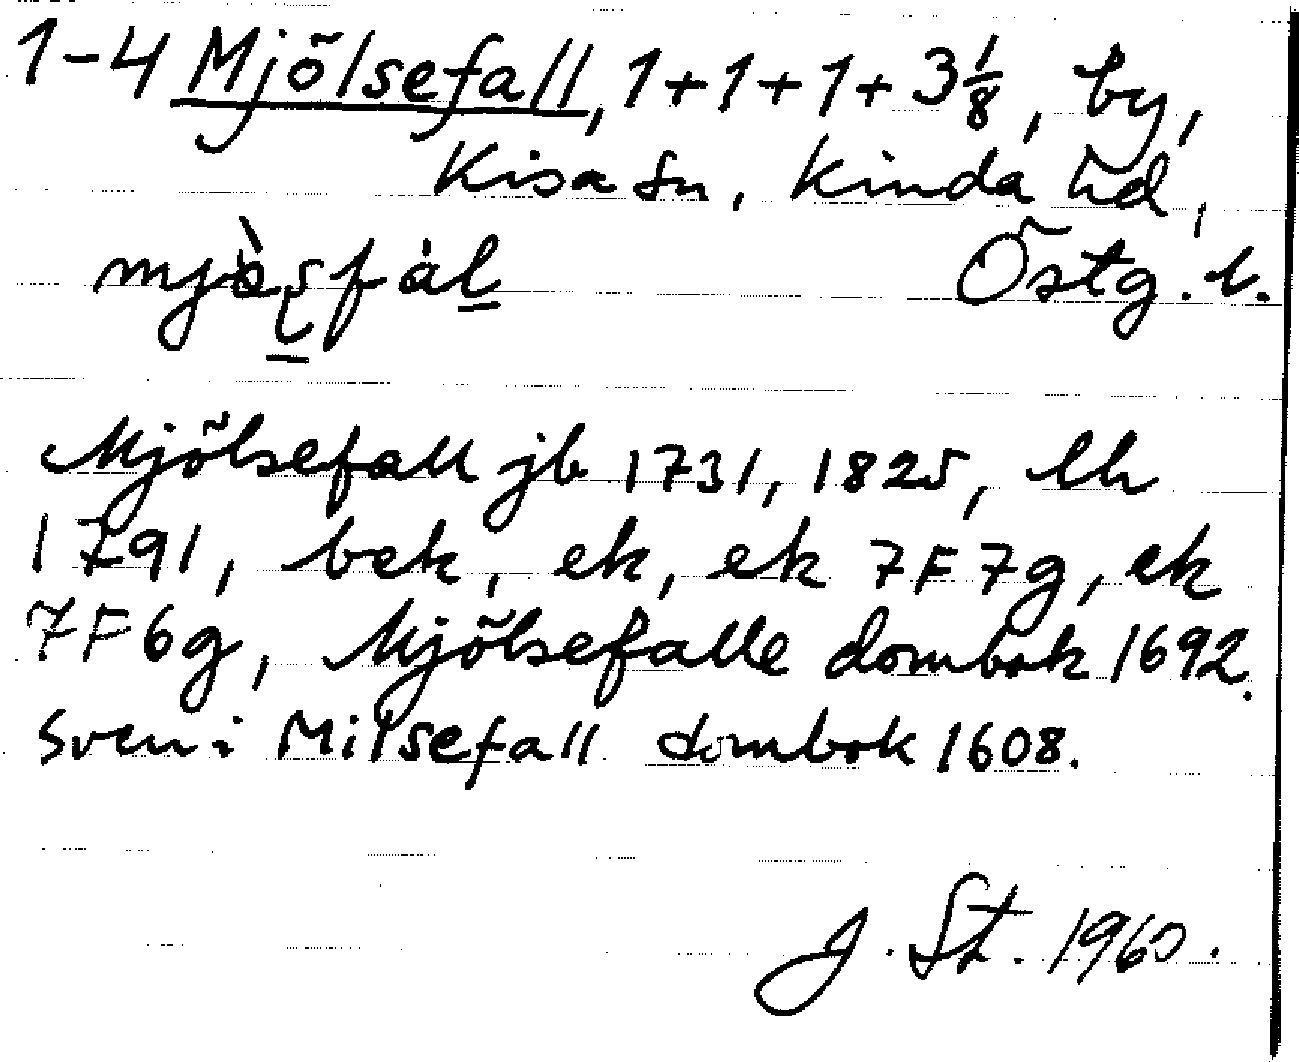 1-4 Mjölsefall, 1+1+1+3⅛, by,
Kisa sn, Kinda hd,
Östg. l.
Mjölsefall jb 1731, 1825, lh
1791, bek, ek, ek 7F7g, ek
7F6g, Mjölsefalle dombok 1692.
Sven i Milsefall dombok 1608.
J. St. 1960.